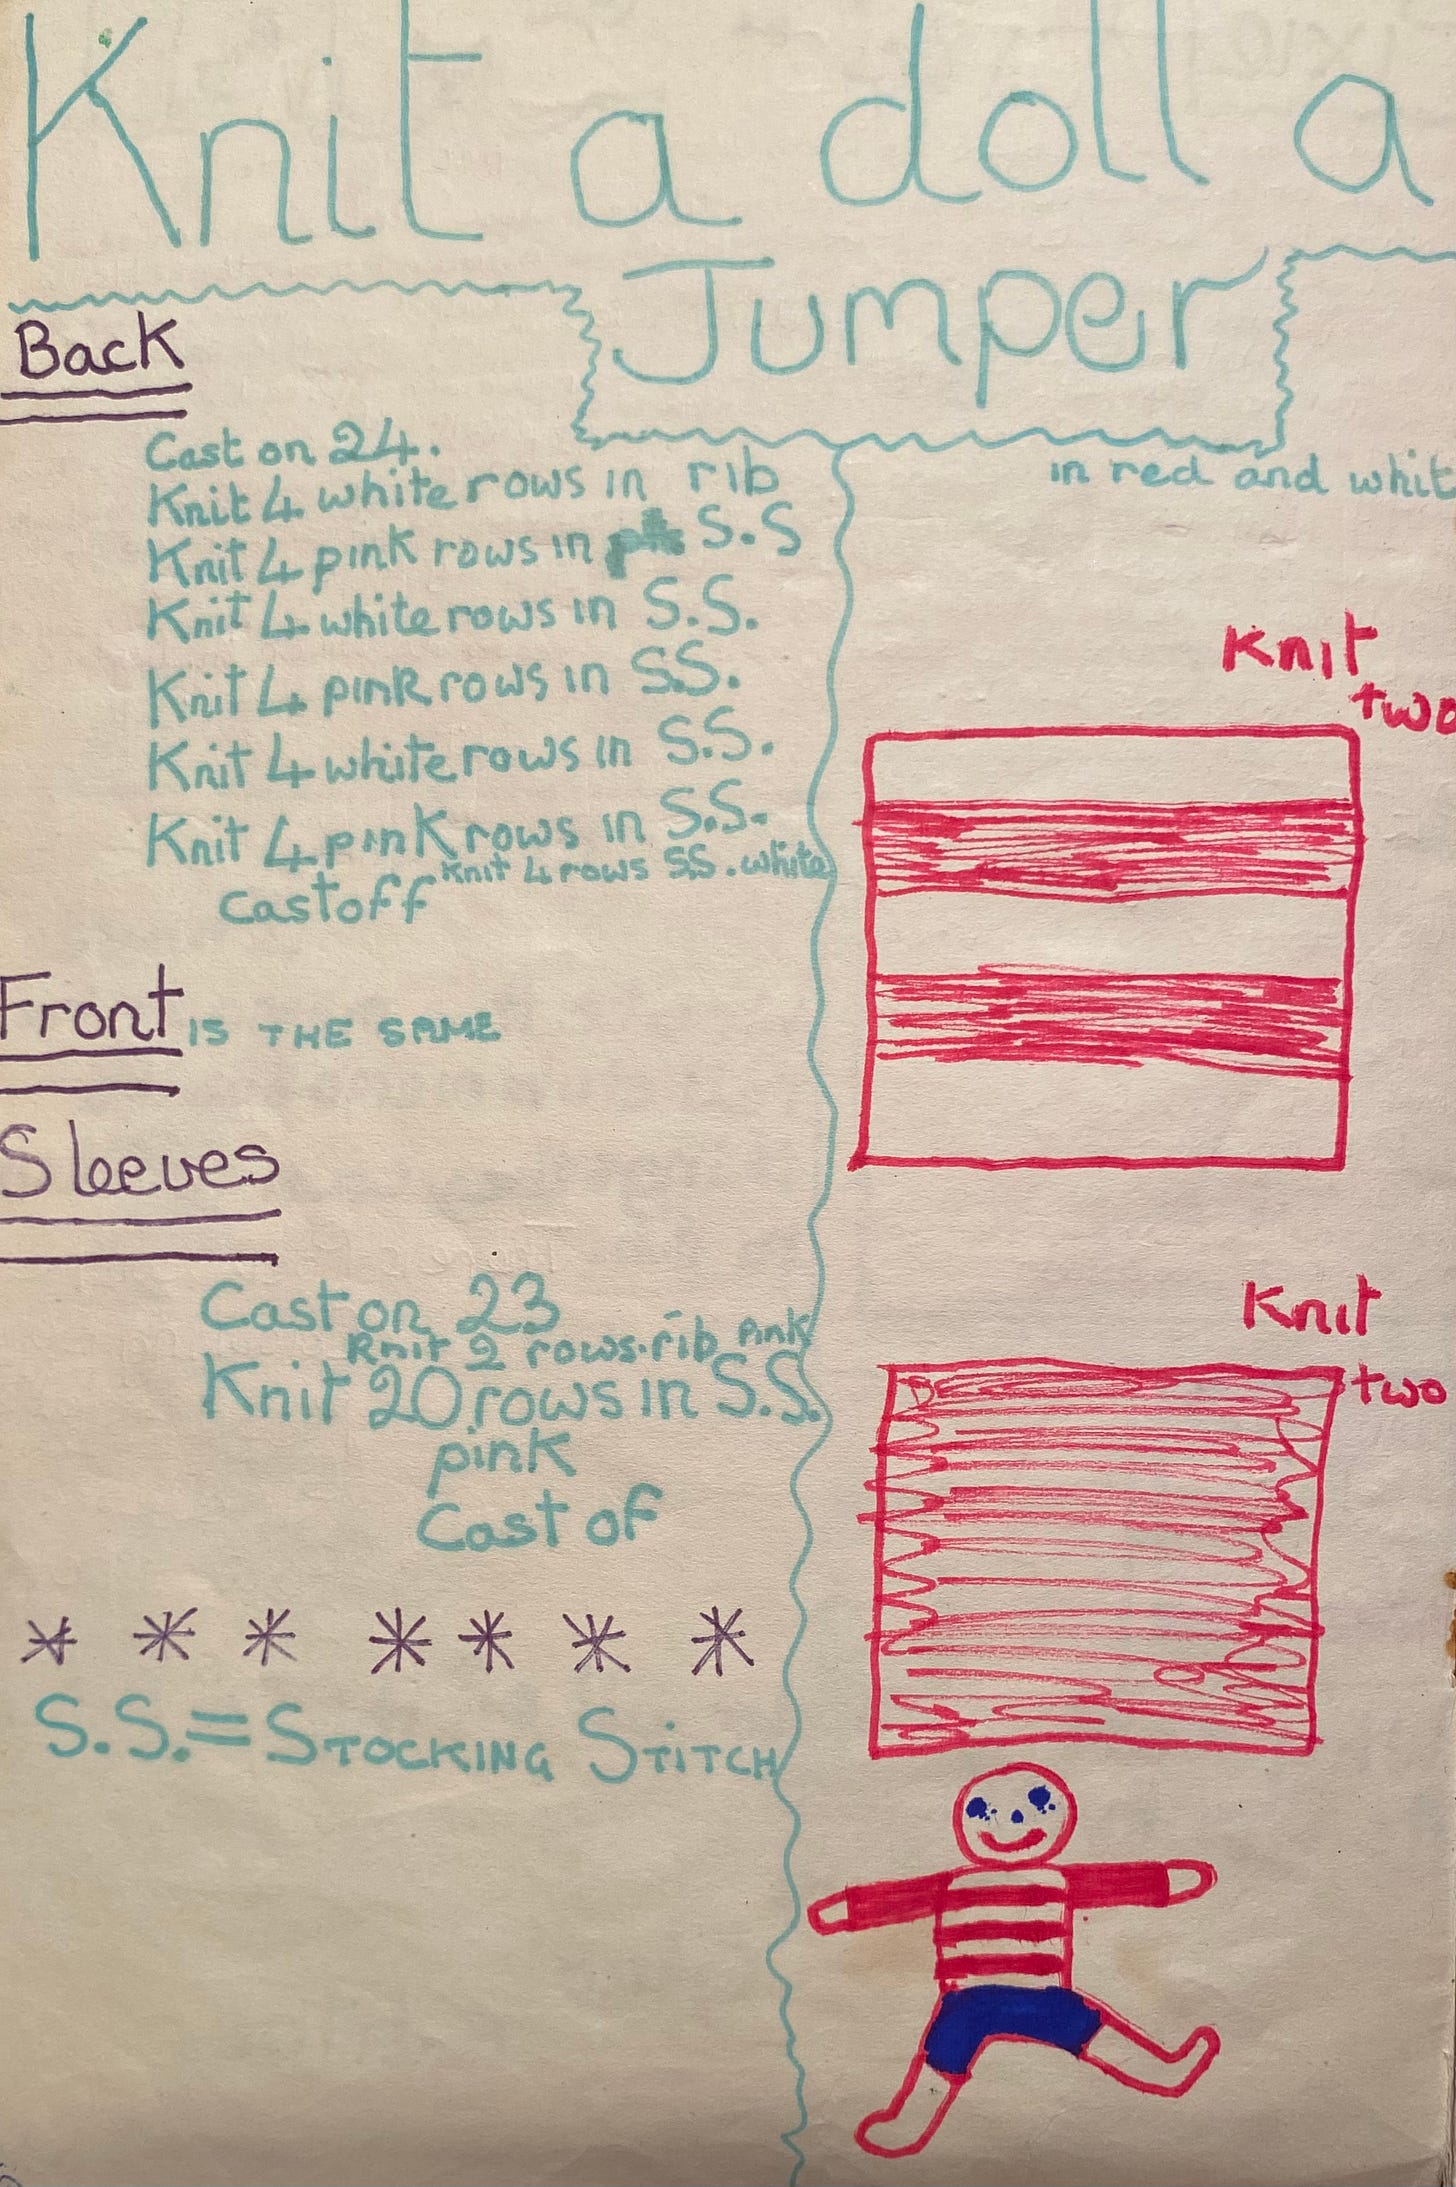 Knit a doll a
Jumper
Back
Cast on 24.
Knit 4 white rows in rib
Knit 4 pink rows in S.S
Knit 4 white rows in S.S.
Knit 4 pink rows in S.S.
Knit 4 white rows in S.S.
Knit 4 pink rows in S.S.
Knit 4 rows SS. white
Castoff
Front IS THE SAME
Sleeves
Cast on 23
Knit 2 rows. rib Pink
Knit 20 rows in S.S.
pink
Cast of
S.S. = STOCKING STITCH
in red and whit
Knit
two
Knit
two